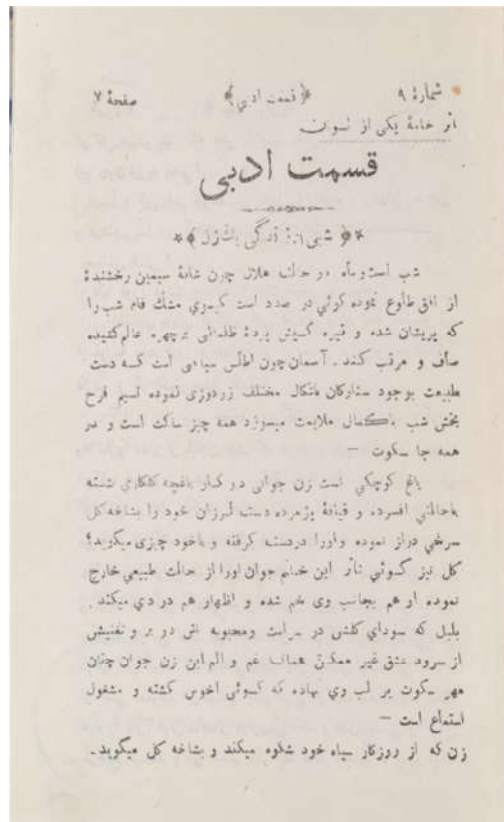 شمارهٔ ۹ ﴿ قسمت ادبی ﴾ صفحهٔ ۷
اثر خامهٔ یکی از نسوان
قسمت ادبی
﴿ شبی از زندگی یک زن ﴾
شب است و ماه در حالت هلال چون شانهٔ سیمین رخشندهٔ
از افق طلوع نموده گوئی در صدد است گیسوی مشك فام شب را
که پریشان شده و تیره گیش پردهٔ ظلمانی برچهره عالم کشیده
صاف و مرتب کند . آسمان چون اطلس سیاهی است که دست
طبیعت بوجود ستارکان باشکال مختلف زردوزی نموده نسیم فرح
بخش شب باکمال ملایمت میوزد همه چیز ساکت است و در
همه جا سکوت —
باغ کوچکی است زن جوانی در کنار باغچه گلکاری نشسته
باحالتی افسرده و قیافهٔ پژمرده دست لرزان خود را بشاخه کل
سرخی دراز نموده واورا دردست گرفته و باخود چیزی میگوید؟
کل نیز گوئی تأثر این خانم جوان اورا از حالت طبیعی خارج
نموده او هم بجانب وی خم شده و اظهار هم دردی میکند .
بلبل که سودای گلش در سر است ومحبوبه اش در بر و نفنیش
از سرود عشق غیر ممکن همانا غم و الم این زن جوان چنان
مهر سکوت بر لب وی نهاده که گوئی اخرس گشته و مشغول
استماع است —
زن که از روزکار سیاه خود شکوه میکند و بشاخه کل میگوید .